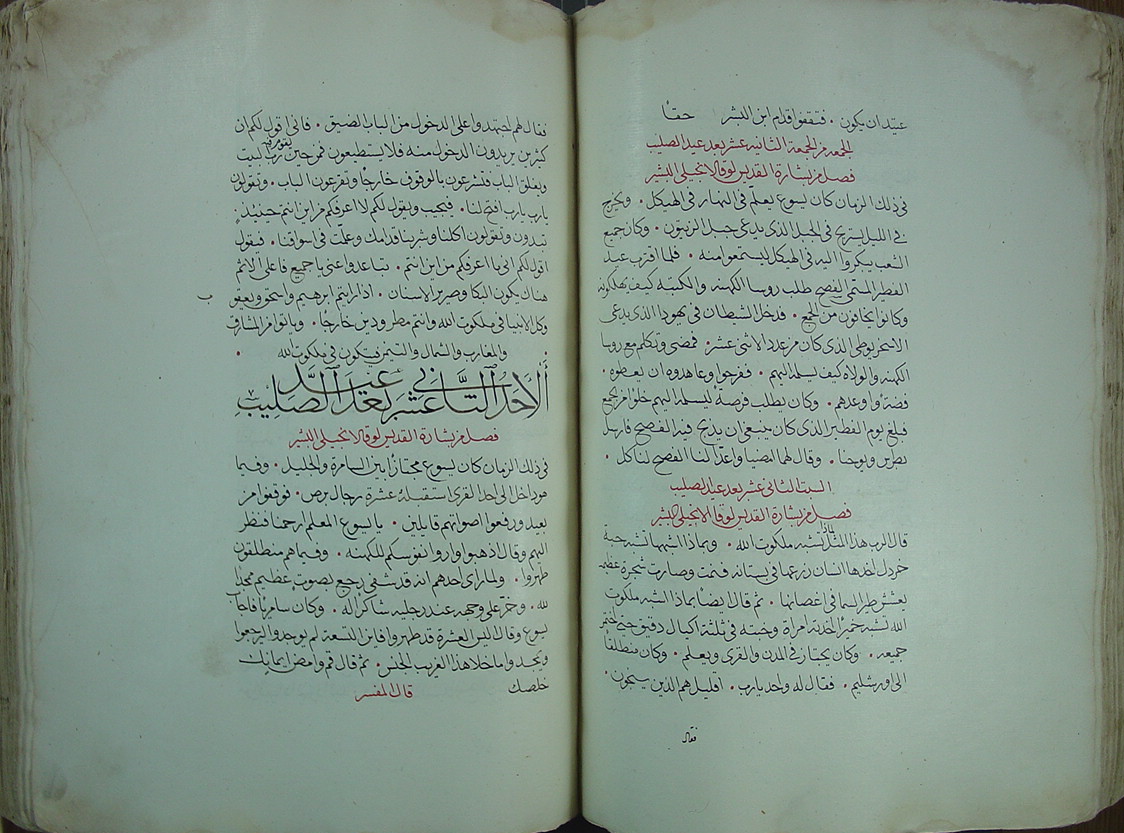 عتيد ان يكون . فتقفوا قدام ابن البشر حقًا
الجمعه من الجمعة الثانيه عشر بعد عيد الصليب
فصل من بشارة القديس لوقا الانجيلي البشير
في ذلك الزمان كان يسوع يعلّم في النهار في الهيكل . ويخرج
في الليل يستريح في الجبل الذي يدعى جبل الزيتون . وكان جميع
الشعب يبكروا اليه في الهيكل ليستمعوا منه . فلما اقترب عيد
الفطير المسمّى الفصح طلب روسا الكهنه والكتبه كيف يهلكونه
وكانوا يخافون من الجمع . فدخل الشيطان في يهودا الذي يدعى
الاسخريوطي الذي كان من عدد الاثني عشر . فمضى وتكلم مع روسا
الكهنه والولاه كيف يسلمه اليهم . ففرحوا وعاهدوه ان يعطوه
فضة واوعدهم . وكان يطلب فرصة ليسلمه اليهم خلوا من الجمع
فبلغ يوم الفطير الذي كان ينبغي ان يذبح فيه الفصح فارسل
بطرس ويوحنا . وقال لهما امضيا واعدا لنا الفصح لناكل .
السبت الثاني عشر بعد عيد الصليب
فصل من بشارة القديس لوقا الانجيلي البشير
قال الرب هذا المثل بماذا تشبه ملكوت الله . وبماذا اشبهها تشبه حبة
خردل اخذها انسان زرعها في بستانه فنمت وصارت شجرة عظيمه
يعشش طير السما في اغصانها . ثم قال ايضًا بماذا اشبه ملكوت
الله تشبه خميرًا اخذته امراة وخبته في ثلثة اكيال دقيق حتى اختمر
جميعه . وكان يجتاز في المدن والقرى ويعلم . وكان منطلقًا
الى اورشليم . فقال له واحد يارب . اقليل هم الذين ينجون .
فقال
فقال لهم اجتهدوا على الدخول من الباب الضيق . فاني اقول لكم ان
كثيرين يريدون الدخول منه فلا يستطيعون فمن حين يقوم رب البيت
ويغلق الباب فتشرعون بالوقوف خارجًا وتقرعون الباب . وتقولون
يارب يارب افتح لنا . فيجيب ويقول لكم لا اعرفكم من اين انتم حينيذ
تبدون وتقولون اكلنا وشربنا قدامك وعلّمت في اسواقنا . فيقول
اقول لكم اني ما اعرفكم من اين انتم . تباعدوا عني يا جميع فاعلي الاثم
هناك يكون البكا وصرير الاسنان . اذا رايتم ابرهيم واسحق ويعقوب
وكل الانبيا في ملكوت الله وانتم مطرودين خارجًا . وياتوا من المشارق
. والمغارب والشمال والتيمن فيتكون في ملكوت الله .
الاحد الثاني عشر بعد عيد الصليب
فصل من بشارة القديس لوقا الانجيلي البشير
في ذلك الزمان كان يسوع مجتازًا بين السامرة والجليل . وفيما
هو داخل الى احد القرى استقبلهُ عشرة رجال برص . فوقفوا من
بعيد ورفعوا اصواتهم قايلين . يا يسوع المعلم ارحمنا فنظر
اليهم وقال اذهبوا واروا نفوسكم للكهنه . وفيما هم منطلقون
طهروا . ولما راى احدهم انه قد شفى رجع بصوتٍ عظيم مجدًا
لله . وخرّ على وجهه عند رجليه شاكرًا له . وكان سامريًا فاجاب
يسوع وقال اليس العشرة قد طهروا فاين التسعة لم يوجدوا ليرجعوا
ويمجدوا ما خلا هذا الغريب الجنس . ثم قال قم وامض ايمانك
خلصك قال المفسر